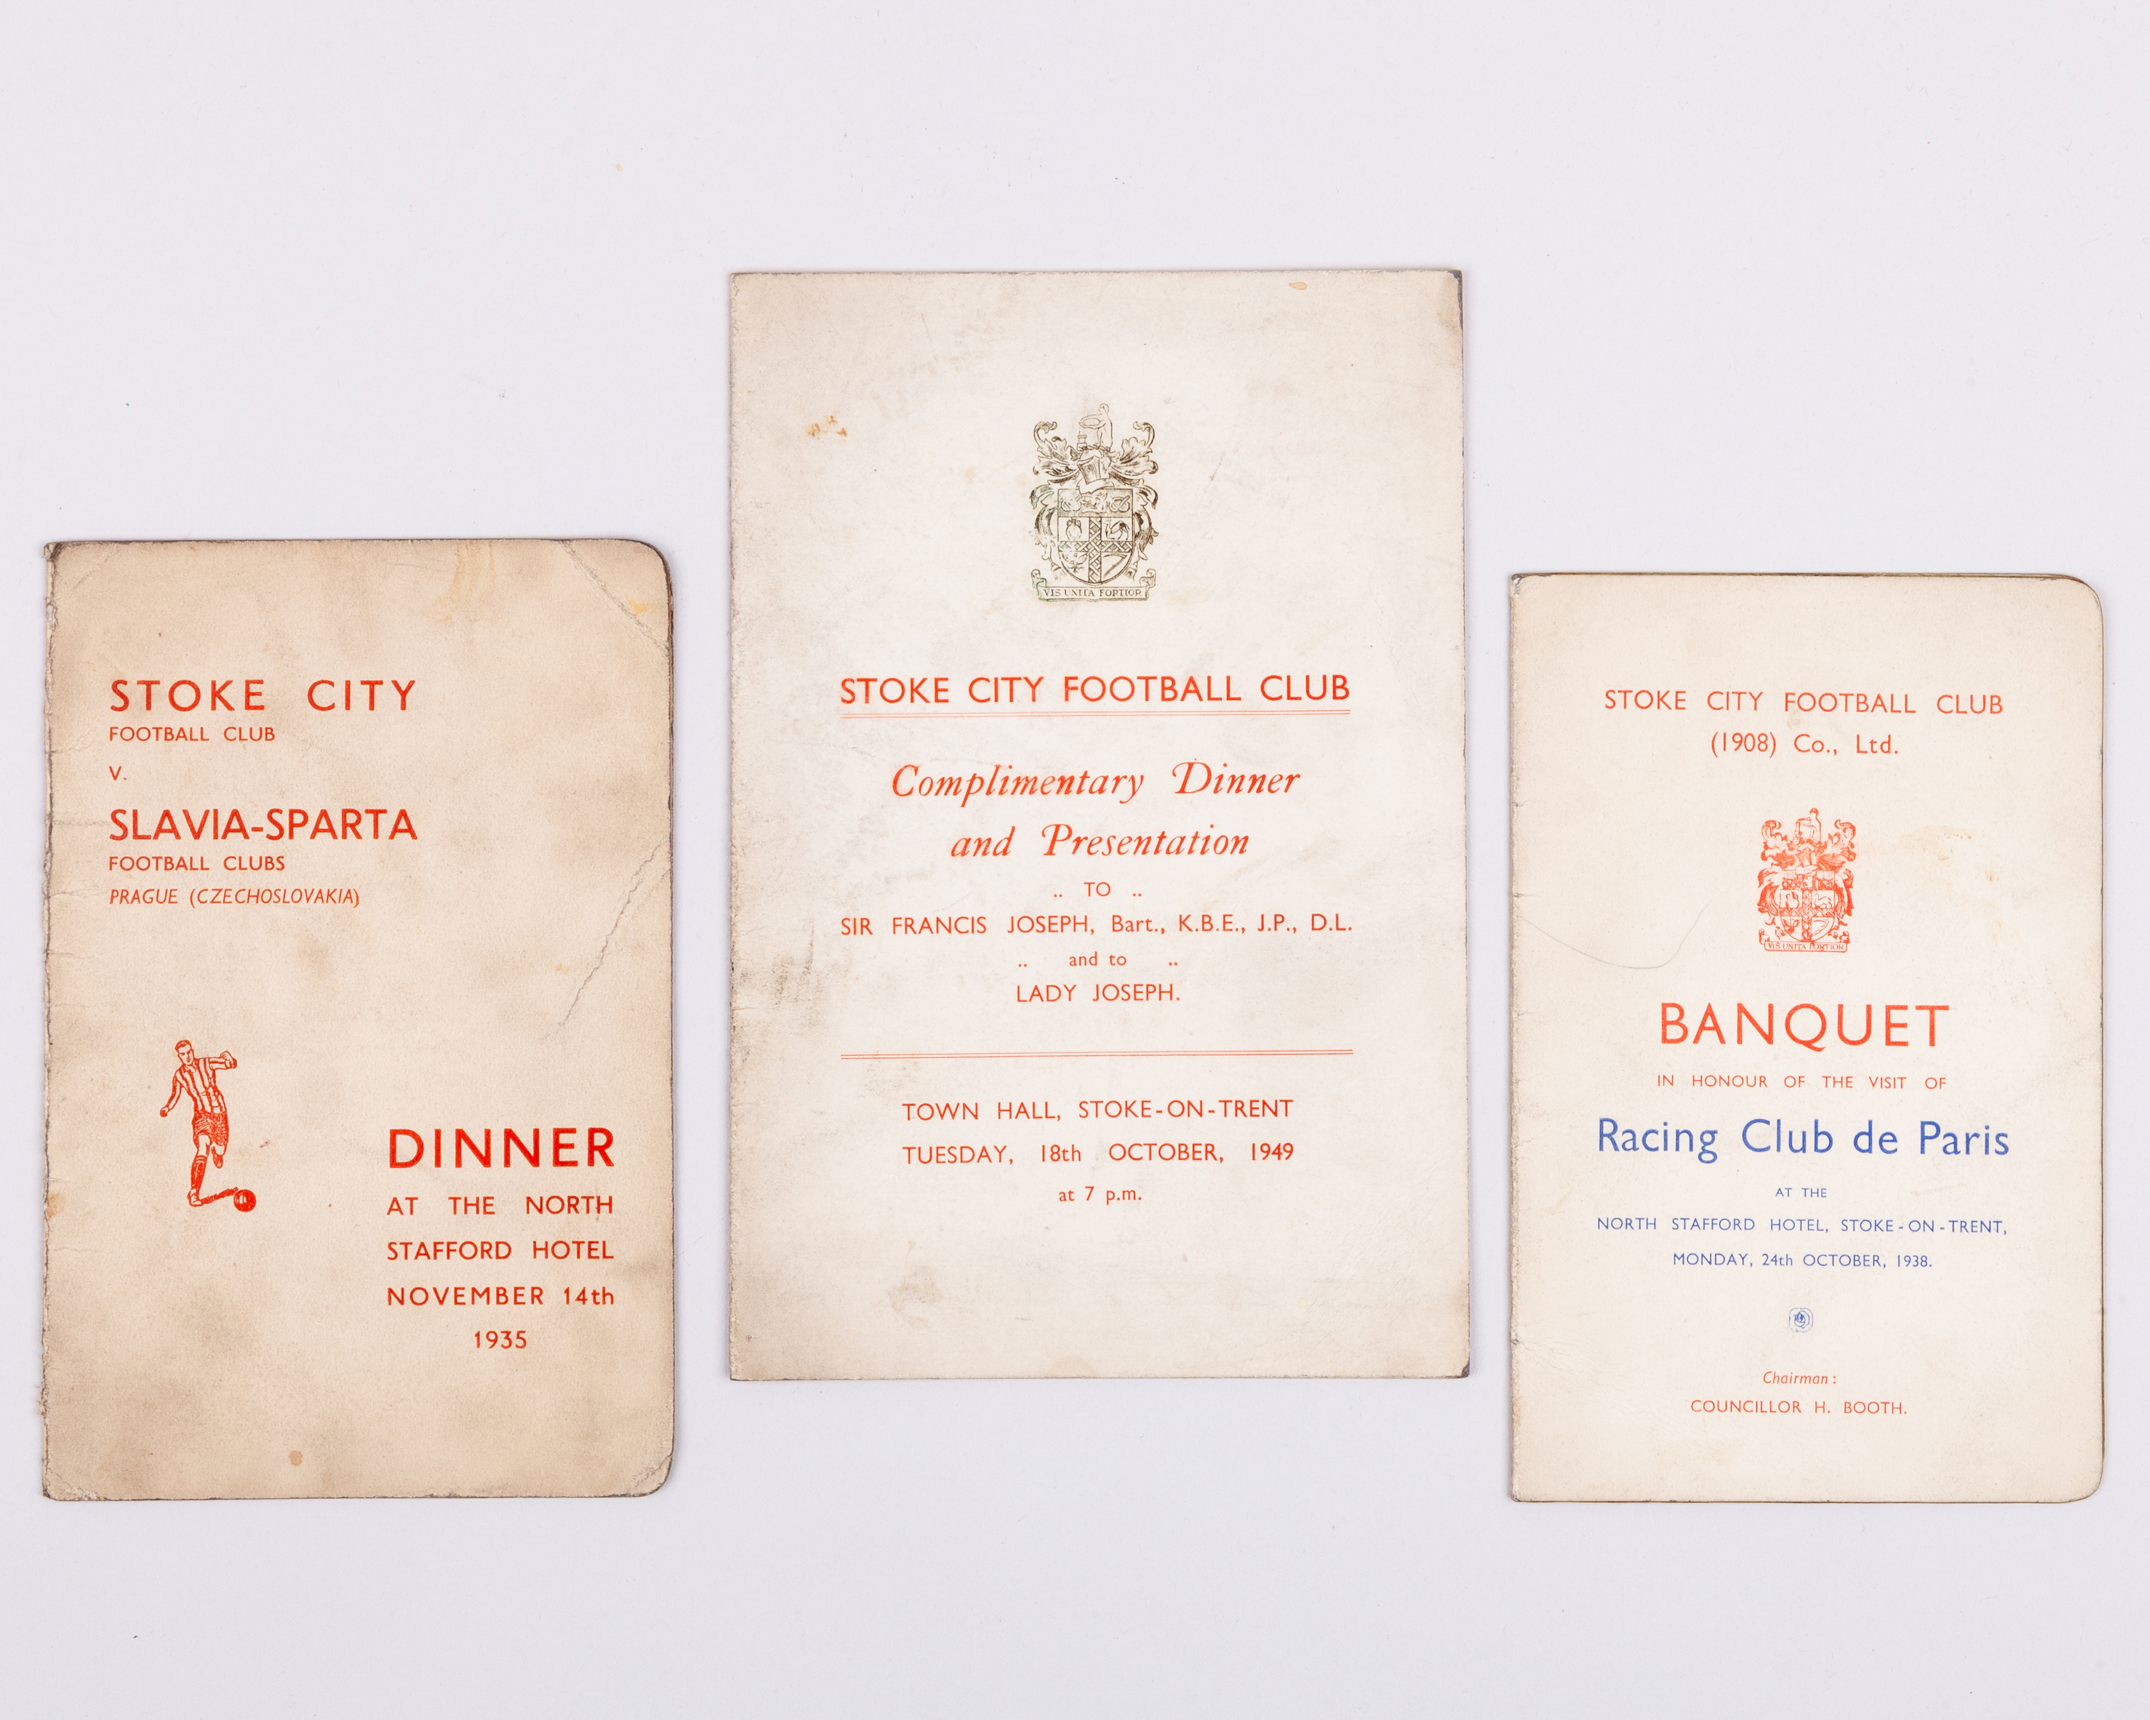 STOKE CITY
FOOTBALL CLUB
V.
SLAVIA-SPARTA
FOOTBALL CLUBS
PRAGUE (CZECHOSLOVAKIA)
DINNER
AT THE NORTH
STAFFORD HOTEL
NOVEMBER 14th
1935
VIS UNITA FORTIOR
STOKE CITY FOOTBALL CLUB
Complimentary Dinner
and Presentation
.. TO ..
SIR FRANCIS JOSEPH, Bart., K.B.E., J.P., D.L.
.. and to ..
LADY JOSEPH.
TOWN HALL, STOKE-ON-TRENT
TUESDAY, 18th OCTOBER, 1949
at 7 p.m.
STOKE CITY FOOTBALL CLUB
(1908) Co., Ltd.
VIS UNITA FORTIOR
BANQUET
IN HONOUR OF THE VISIT OF
Racing Club de Paris
AT THE
NORTH STAFFORD HOTEL, STOKE-ON-TRENT,
MONDAY, 24th OCTOBER, 1938.
Chairman:
COUNCILLOR H. BOOTH.